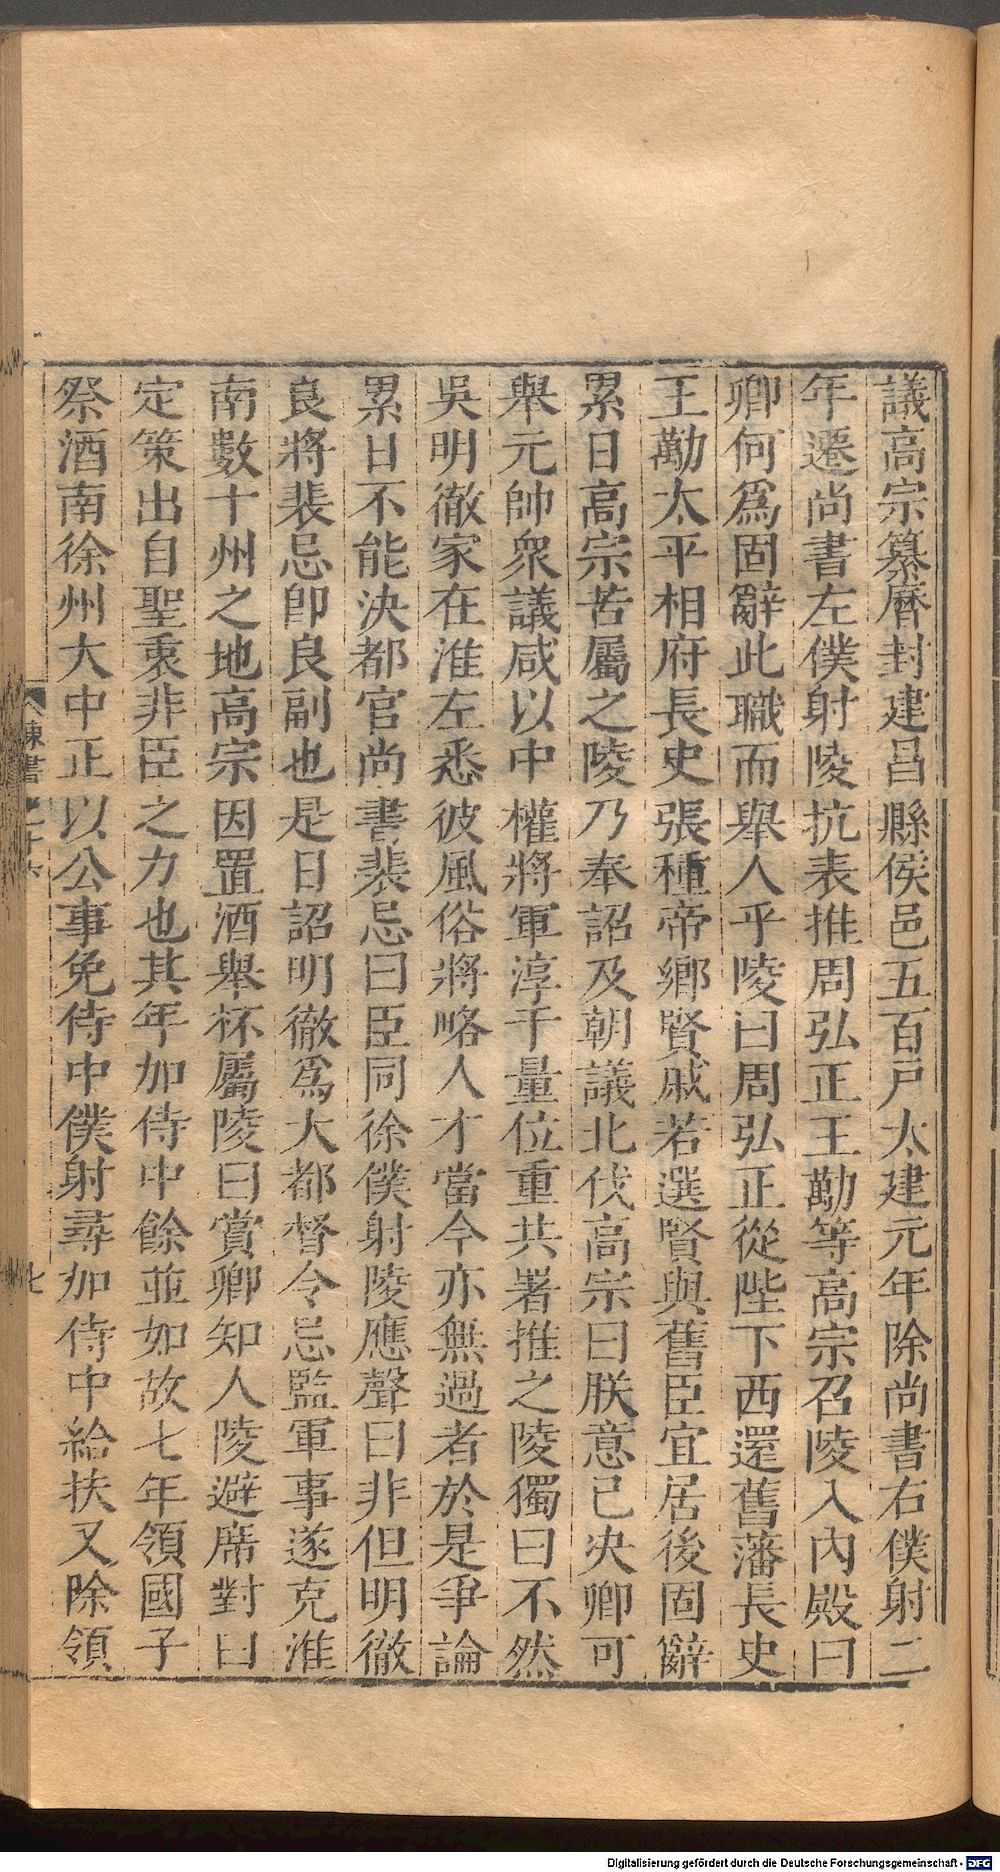 議高宗纂曆封建昌縣侯邑五百戸太建元年除尚書右僕射二
年遷尚書左僕射陵抗表推周弘正王勱等高宗召陵入內殿曰
卿何爲固辭此職而舉人乎陵曰周弘正從陛下西還舊藩長史
王勱太平相府長史張種帝鄉賢戚若選賢與舊臣宜居後固辭
累日高宗苦屬之陵乃奉詔及朝議北伐高宗曰朕意已决卿可
舉元帥衆議咸以中權將軍淳于量位重共署推之陵獨曰不然
吳明徹家在淮左悉彼風俗將略人才當今亦無過者於是爭論
累日不能決都官尚書裴忌曰臣同徐僕射陵應聲曰非但明徹
良將裴忌卽良副也是日詔明徹爲大都督令忌監軍事遂克淮
南數十州之地高宗因置酒舉杯屬陵曰賞卿知人陵避席對曰
定策出自聖衷非臣之力也其年加侍中餘並如故七年領國子
祭酒南徐州大中正以公事免侍中僕射尋加侍中給扶又除領
陳書 七
Digitalisierung gefördert durch die Deutsche Forschungsgemeinschaft - DFG